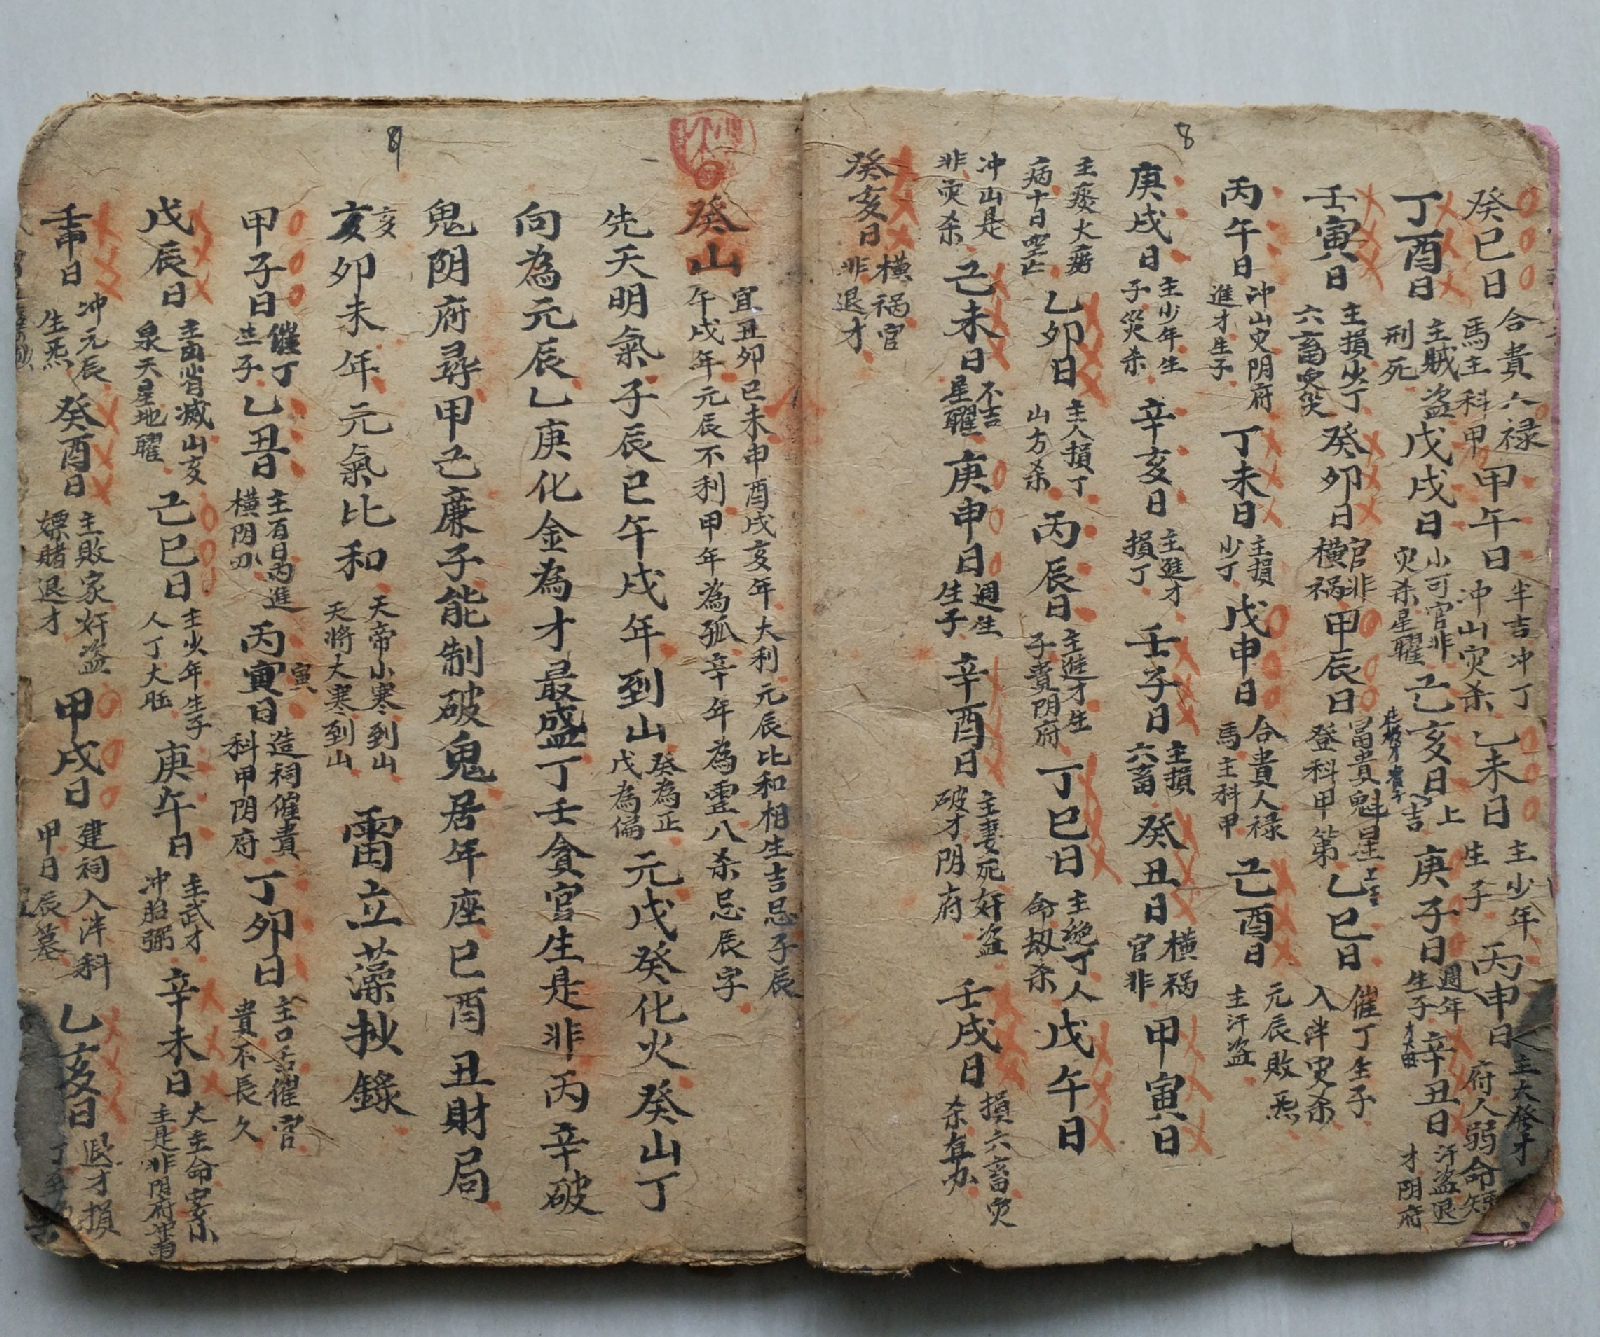 8
癸巳日 合貴人禄馬主科甲 甲午日 半吉冲丁冲山灾杀 乙未日 主少年生子 丙申日 主大發才府人弱命短
丁酉日 主賊盗刑死 戊戌日 小可官非灾杀星曜 己亥日 上吉 庚子日 週年生子 辛丑日 汗盗退才阴府
壬寅日 主損少丁六畜灾 癸卯日 官非横祸 甲辰日 冨貴魁星登科甲第 乙巳日 催丁生子入泮灾杀
丙午日 冲山灾阴府進才生子 丁未日 主損少丁 戊申日 合貴人禄馬主科甲 己酉日 元辰敗炁主汗盗
庚戌日 主少年生子灾杀 辛亥日 主進才損丁 壬子日 主損六畜 癸丑日 横祸官非 甲寅日
主瘟火痨病十日空亡 乙卯日 主人損丁山方杀 丙辰日 主進才生子貴阴府 丁巳日 主絶丁人命刼杀 戊午日
冲山是非灾杀 己未日 不吉星曜 庚申日 週生生子 辛酉日 主妻死奸盗破才阴府 壬戌日 損六畜灾杀
癸亥日 横祸官非退才
9
癸山 宜丑卯巳未申酉戌亥年大利元辰比和相生吉忌子辰午戌年元辰不利甲年為孤辛年為虚八杀忌辰字
先天明氣子辰巳午戌年到山 癸為正戊為偏 元戊癸化火癸山丁
向為元辰乙庚化金為才最盛丁壬貪官生是非丙辛破
鬼阴府尋甲己廉子能制破鬼居年座巳酉丑財局
亥卯未年元氣比和 天帝小寒到山天將大寒到山 雷立藻抄錄
甲子日 催丁生子 乙丑日 主百日內進横阴 丙寅日 造祠催貴科甲阴府 丁卯日 主口舌催官貴不長久
戊辰日 泉天星地曜 己巳日 主少年生子人丁大旺 庚午日 主武才冲胎 辛未日 大主命主是非阴府
壬申日 冲元辰生炁 癸酉日 主敗家奸盗嫖賭退才 甲戌日 建祠入泮科甲日辰墓 乙亥日 退才損